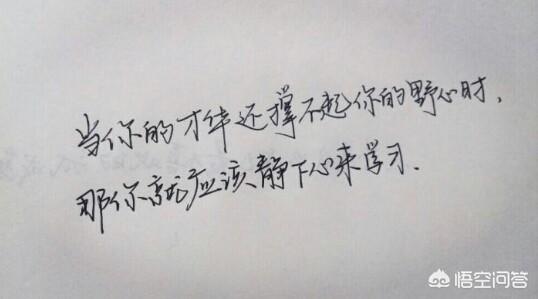 当你的才华还撑不起你的野心时，
那你就应该静下心来学习.
悟空问答